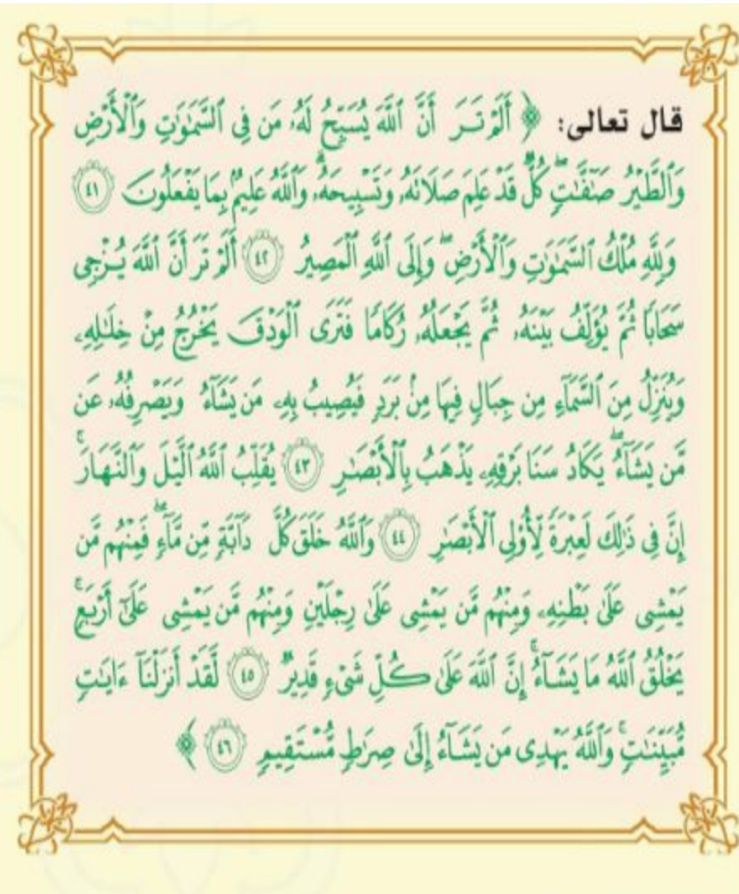 قال تعالى: ﴿ أَلَمْ تَرَ أَنَّ ٱللَّهَ يُسَبِّحُ لَهُۥ مَن فِى ٱلسَّمَٰوَٰتِ وَٱلْأَرْضِ
وَٱلطَّيْرُ صَٰٓفَّٰتٍۖ كُلٌّ قَدْ عَلِمَ صَلَانَهُۥ وَتَسْبِيحَهُۥۗ وَٱللَّهُ عَلِيمٌۢ بِمَا يَفْعَلُونَ ٤١
وَلِلَّهِ مُلْكُ ٱلسَّمَٰوَٰتِ وَٱلْأَرْضِۖ وَإِلَى ٱللَّهِ ٱلْمَصِيرُ ٤٢ أَلَمْ تَرَ أَنَّ ٱللَّهَ يُزْجِى
سَحَابًا ثُمَّ يُؤَلِّفُ بَيْنَهُۥ ثُمَّ يَجْعَلُهُۥ رُكَامًا فَتَرَى ٱلْوَدْقَ يَخْرُجُ مِنْ خِلَٰلِهِۦ
وَيُنَزِّلُ مِنَ ٱلسَّمَآءِ مِن جِبَالٍ فِيهَا مِنۢ بَرَدٍ فَيُصِيبُ بِهِۦ مَن يَشَآءُ وَيَصْرِفُهُۥ عَن
مَّن يَشَآءُۖ يَكَادُ سَنَا بَرْقِهِۦ يَذْهَبُ بِٱلْأَبْصَٰرِ ٤٣ يُقَلِّبُ ٱللَّهُ ٱلَّيْلَ وَٱلنَّهَارَۚ
إِنَّ فِى ذَٰلِكَ لَعِبْرَةً لِّأُو۟لِى ٱلْأَبْصَٰرِ ٤٤ وَٱللَّهُ خَلَقَ كُلَّ دَآبَّةٍ مِّن مَّآءٍۖ فَمِنْهُم مَّن
يَمْشِى عَلَىٰ بَطْنِهِۦ وَمِنْهُم مَّن يَمْشِى عَلَىٰ رِجْلَيْنِ وَمِنْهُم مَّن يَمْشِى عَلَىٰٓ أَرْبَعٍۚ
يَخْلُقُ ٱللَّهُ مَا يَشَآءُۚ إِنَّ ٱللَّهَ عَلَىٰ كُلِّ شَىْءٍ قَدِيرٌ ٤٥ لَّقَدْ أَنزَلْنَآ ءَايَٰتٍ
مُّبَيِّنَٰتٍۚ وَٱللَّهُ يَهْدِى مَن يَشَآءُ إِلَىٰ صِرَٰطٍ مُّسْتَقِيمٍ ٤٦ ﴾